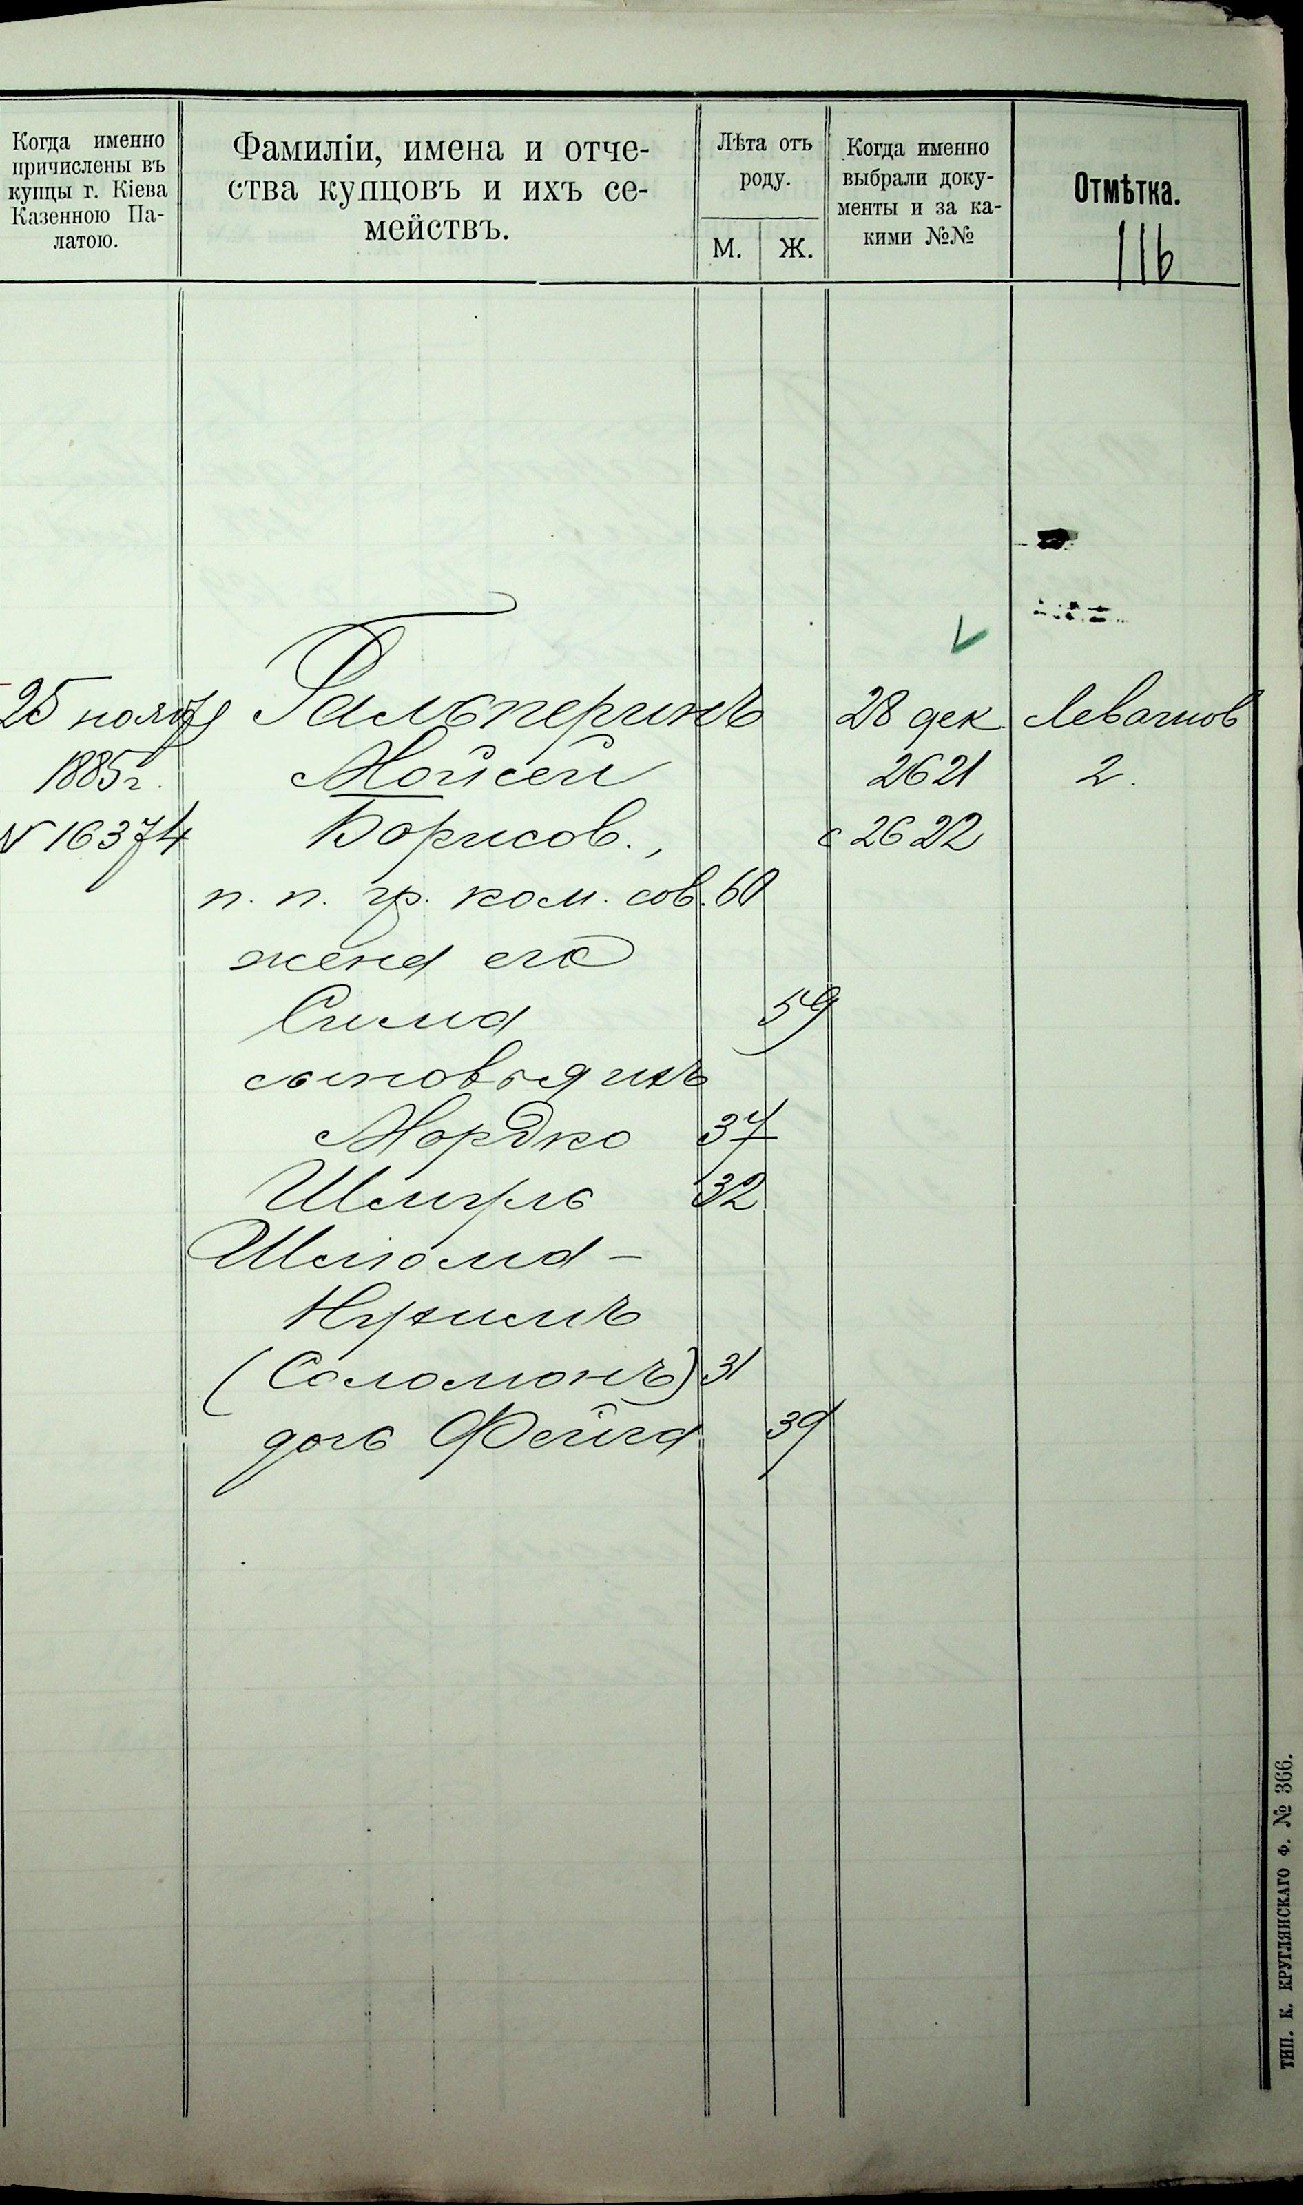 Когда именно
причислены въ
купцы г. Кіева
Казенною Па-
латою.
Фамиліи, имена и отче-
ства купцовъ и ихъ се-
мействъ.
Лѣта отъ
роду.
М. Ж.
Когда именно
выбрали доку-
менты и за ка-
кими №№
Отмѣтка.
116
25 ноября Гальперинъ 28 дек
1885 г. Мойсей 2621 2.
N 16374 Борисов., с 2622
п. п. гр. ком. сов. 60
жена его
Сима 59
сыновья ихъ
Мордко 37
Шмуль 32
Шлюма-
Нухимъ
(Соломонъ) 31
дочь Фейга 39
ТИП. К. КРУГЛЯНСКАГО Ф. № 366.